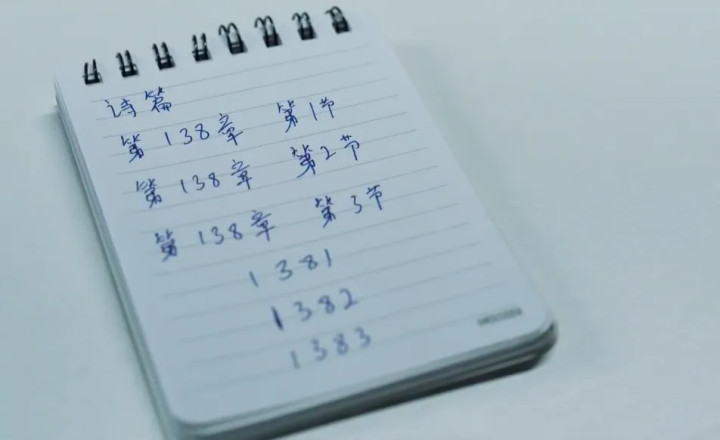 诗篇
第138章 第1节
第138章 第2节
第138章 第3节
1381
1382
1383